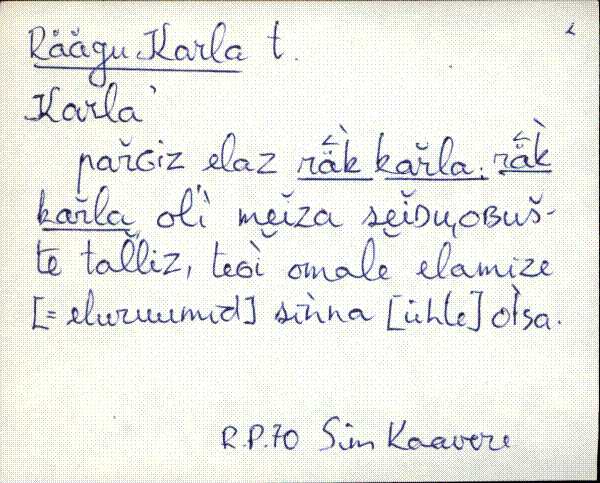 Räägu Karla t.
Karla`
pařGiz elaz räk̀ kařla; räk̀
kařla oĺì meĭza seĭDUOBUš-
te talliz, teGì omale elamize
[= eluruumid] siǹna [ühle] otsa.
R.P.70 Sim Kaavere